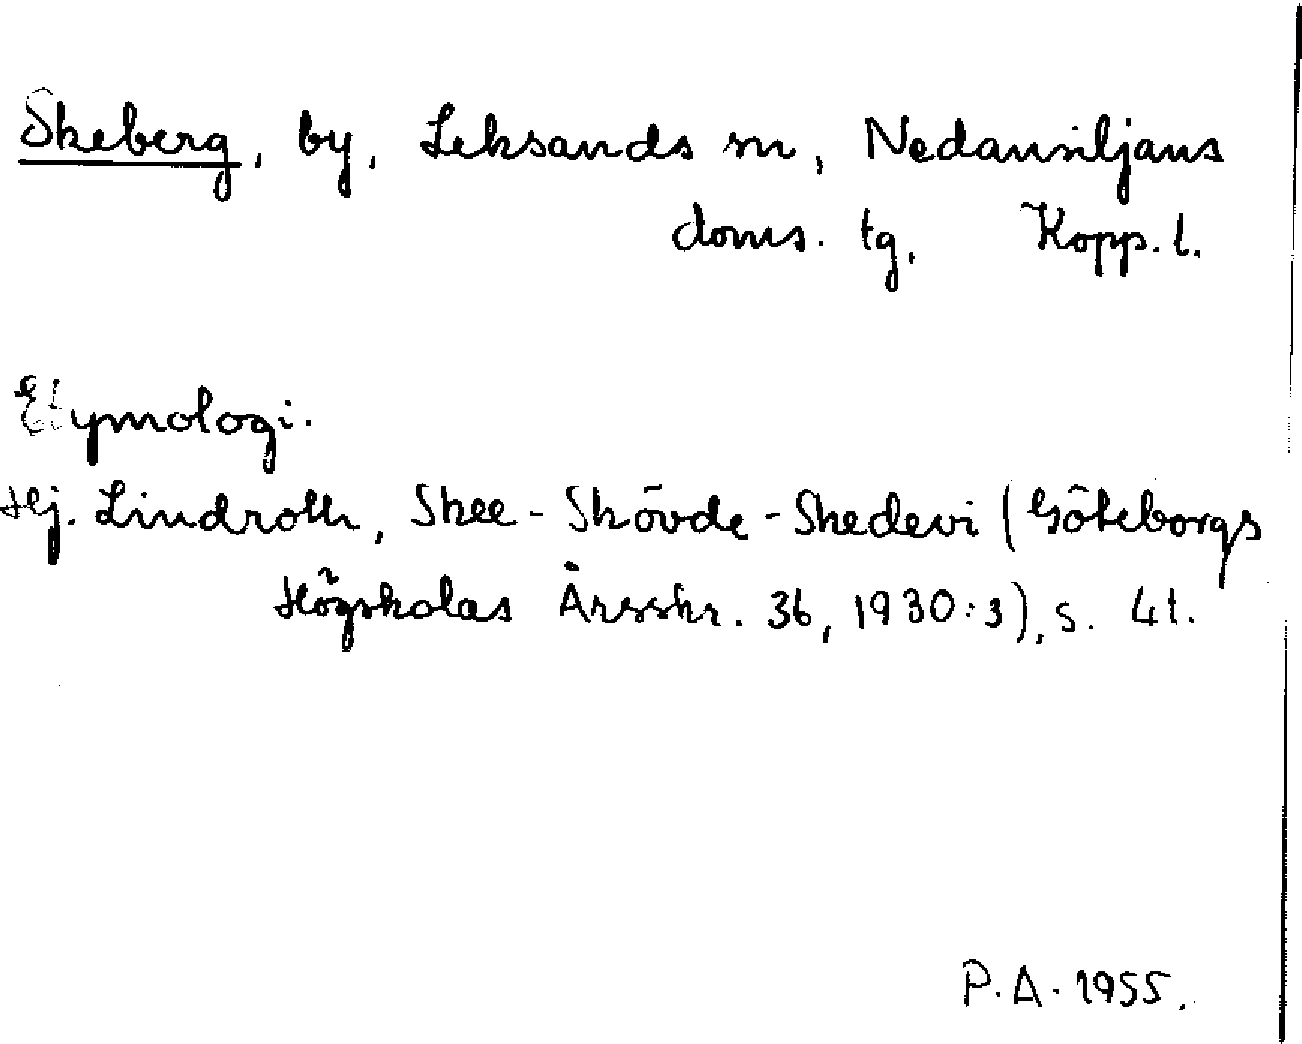 Skeberg, by, Leksands sn, Nedansiljans
doms. tg, Kopp. l.
Etymologi.
Hj. Lindroth, Skee - Skövde - Skedevi (Göteborgs
Högskolas Årsskr. 36, 1930:3), s. 4f.
P.A. 1955.